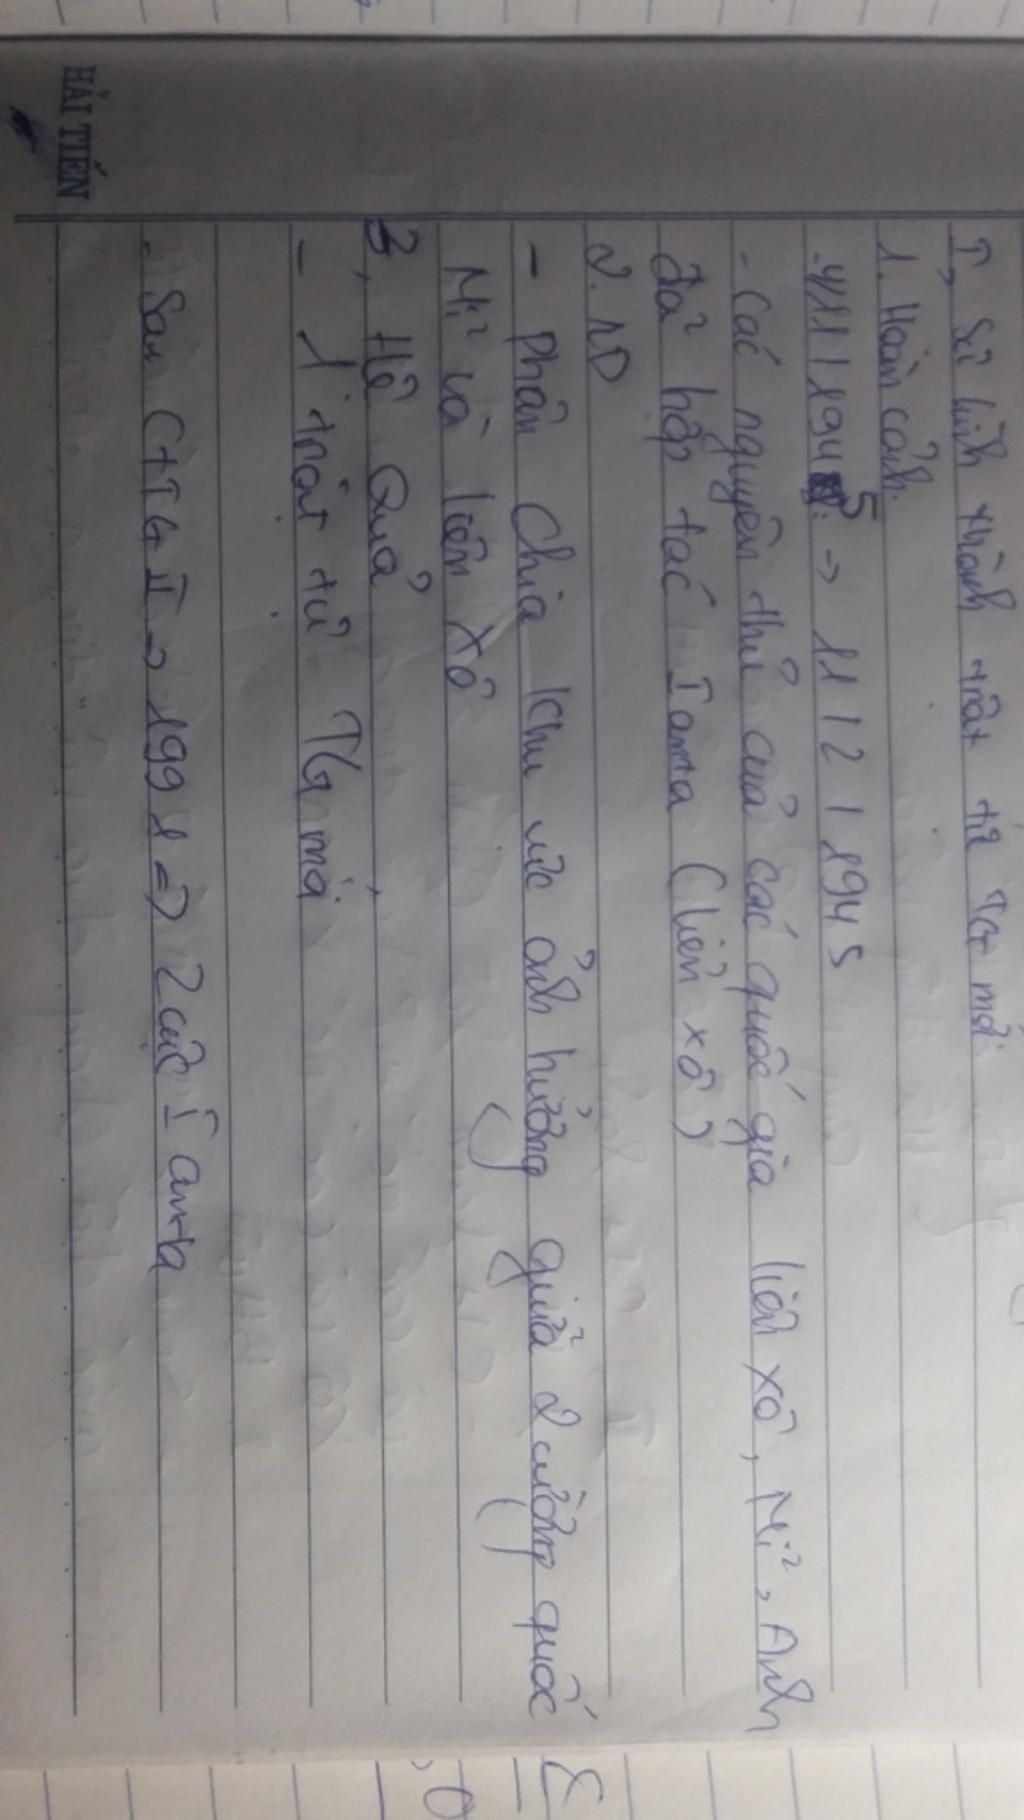 HẢI TIẾN
I, Sự hình thành trật tự TG mới
1. Hoàn cảnh.
- 4/11/1945 -> 11/2/1945
- Các nguyên thủ của các quốc gia liên xô, Mĩ, Anh
đã họp tác Ianta (liên xô)
2. ND
- Phân chia khu vực ảnh hưởng giữa 2 cường quốc
Mĩ và liên xô
3, Hệ Quả
- 1 trật tự TG mới
- Sau CTTG II -> 1991 => 2 cực Ianta